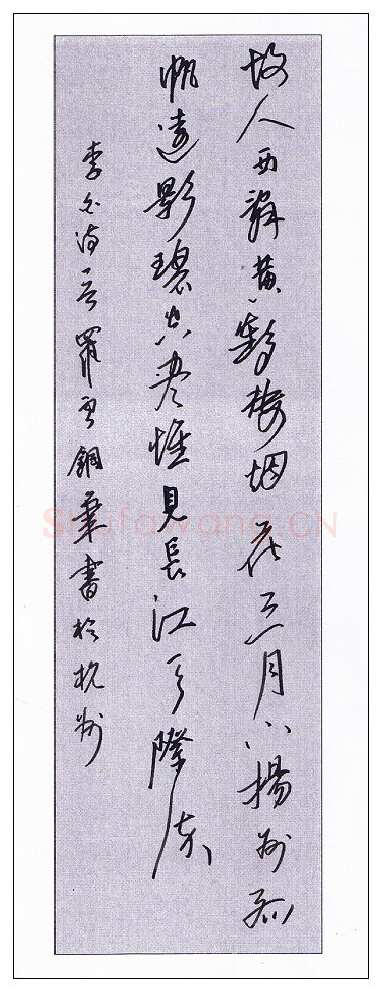 故人西辭黄鶴樓烟花三月下揚州孤
帆遠影碧空盡惟見長江天際流
李白诗一首鋼筆書於杭州
ShufaWang.CN